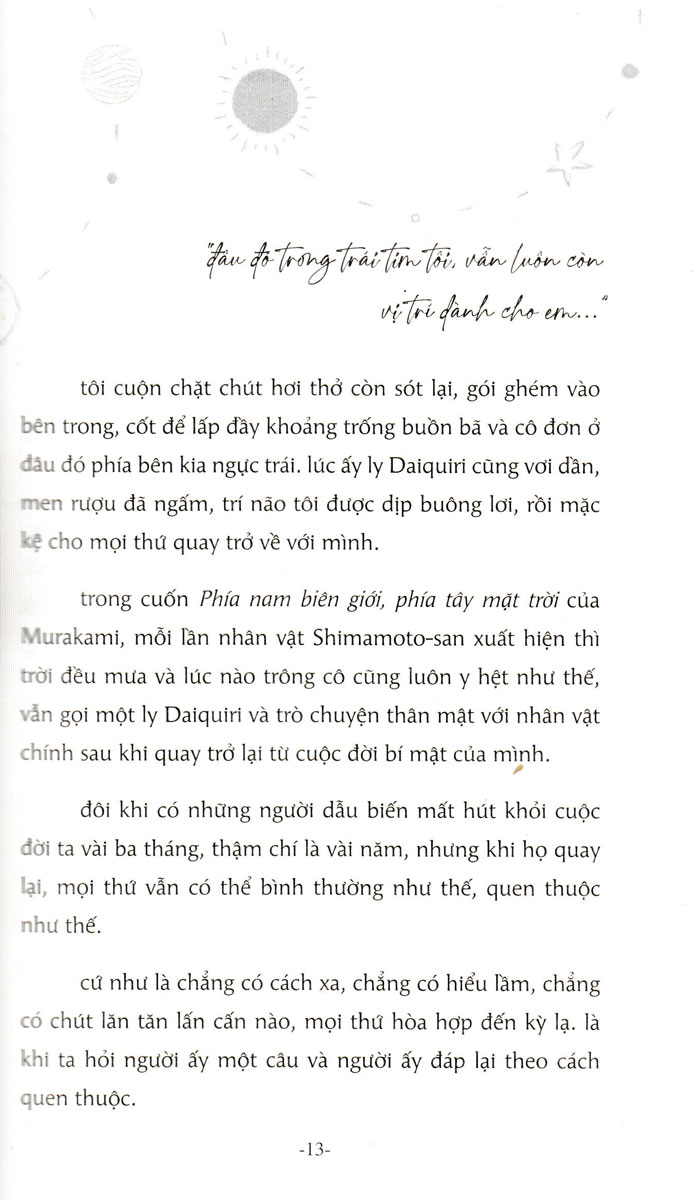 "đâu đó trong trái tim tôi, vẫn luôn còn
vị trí dành cho em..."
tôi cuộn chặt chút hơi thở còn sót lại, gói ghém vào
bên trong, cốt để lấp đầy khoảng trống buồn bã và cô đơn ở
đâu đó phía bên kia ngực trái. lúc ấy ly Daiquiri cũng vơi dần,
men rượu đã ngấm, trí não tôi được dịp buông lơi, rồi mặc
kệ cho mọi thứ quay trở về với mình.
trong cuốn Phía nam biên giới, phía tây mặt trời của
Murakami, mỗi lần nhân vật Shimamoto-san xuất hiện thì
trời đều mưa và lúc nào trông cô cũng luôn y hệt như thế,
vẫn gọi một ly Daiquiri và trò chuyện thân mật với nhân vật
chính sau khi quay trở lại từ cuộc đời bí mật của mình.
đôi khi có những người dẫu biến mất hút khỏi cuộc
đời ta vài ba tháng, thậm chí là vài năm, nhưng khi họ quay
lại, mọi thứ vẫn có thể bình thường như thế, quen thuộc
như thế.
cứ như là chẳng có cách xa, chẳng có hiểu lầm, chẳng
có chút lăn tăn lấn cấn nào, mọi thứ hòa hợp đến kỳ lạ. là
khi ta hỏi người ấy một câu và người ấy đáp lại theo cách
quen thuộc.
-13-